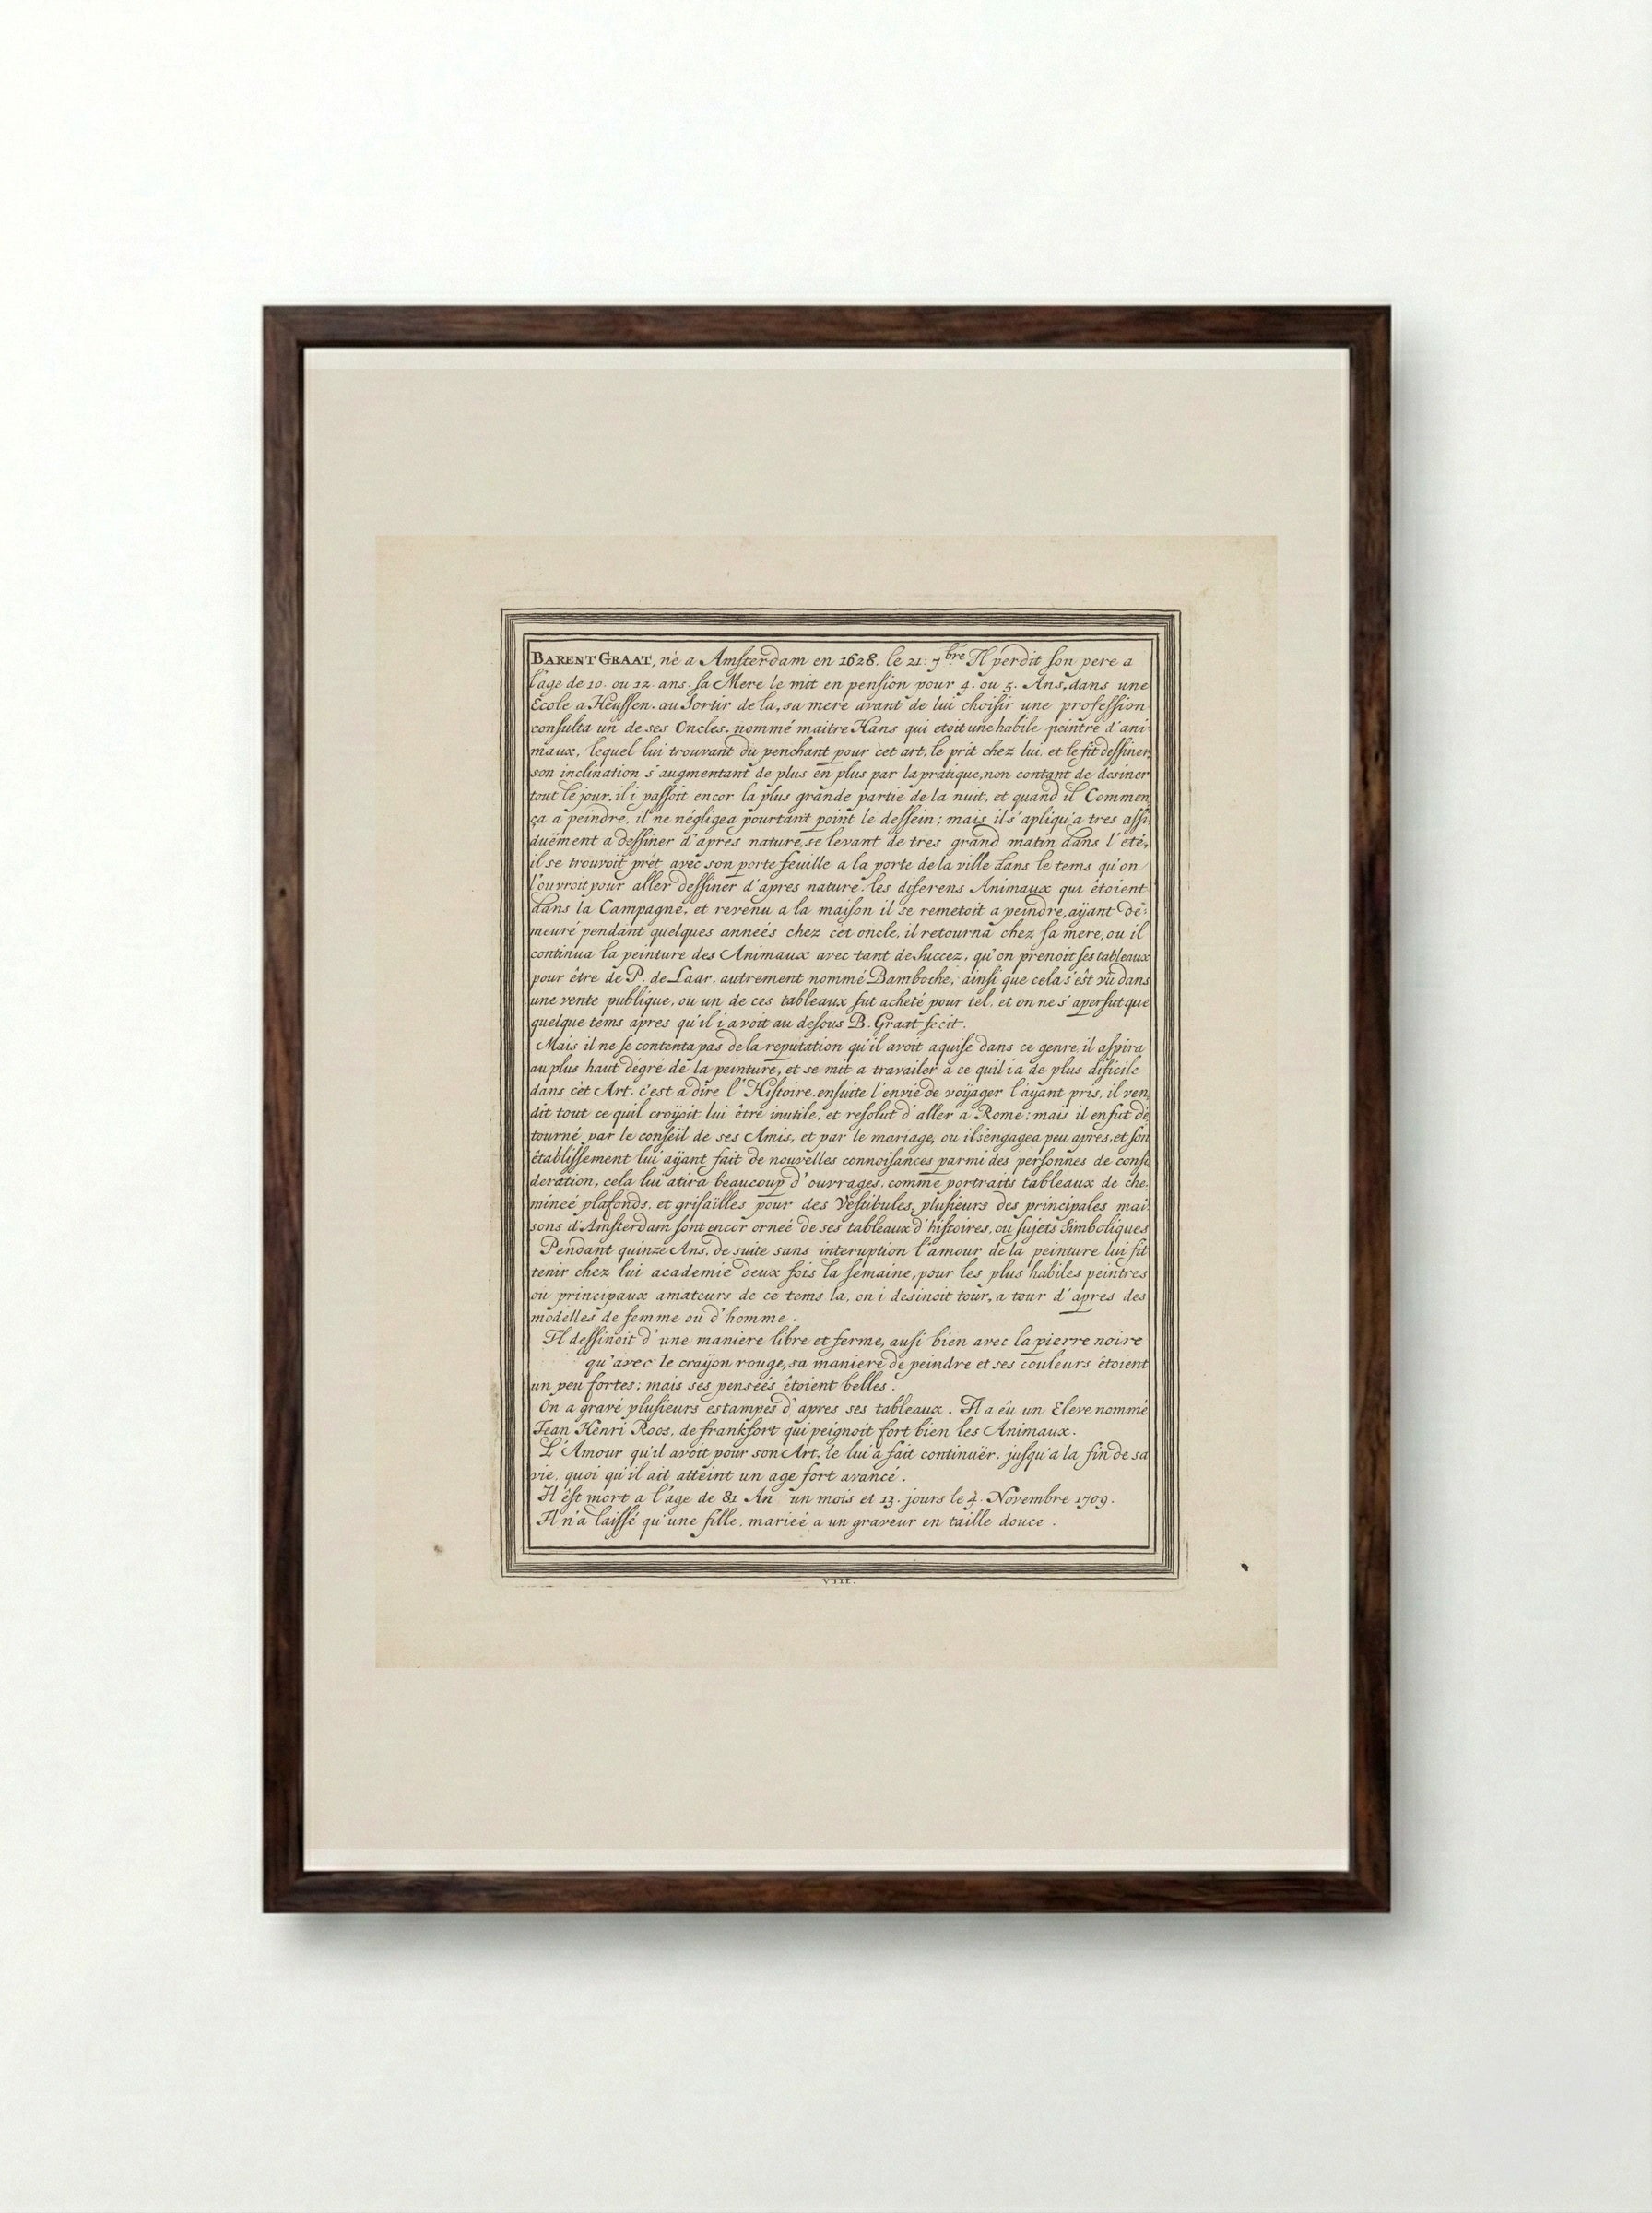 BARENT GRAAT, né a Amsterdam en 1628. le 21. 7bre Il perdit son pere a
l'age de 10. ou 12. ans. sa Mere le mit en pension pour 4. ou 5. Ans, dans une
Ecole a Heussen. au Sortir de la, sa mere avant de lui choisir une profession
consulta un de ses Oncles, nommé maitre Hans qui etoit une habile peintre d'ani-
maux, lequel lui trouvant du penchant pour cet art, le prit chez lui, et le fit dessiner,
son inclination s'augmentant de plus en plus par la pratique, non contant de desiner
tout le jour, il i passoit encor la plus grande partie de la nuit, et quand il Commen
ça a peindre, il ne négligea pourtant point le dessein; mais il s'apliqu'a tres assi-
duëment a dessiner d'apres nature, se levant de tres grand matin dans l'eté,
il se trouvoit prét avec son porte feuille a la porte de la ville dans le tems qu'on
l'ouvroit pour aller dessiner d'apres nature les diferens Animaux qui êtoient
dans la Campagne, et revenu a la maison il se remetoit a peindre, aÿant de-
meuré pendant quelques anneés chez cet oncle, il retourna chez sa mere, ou il
continua la peinture des Animaux avec tant de Succez, qu'on prenoit ses tableaux
pour être de P. de Laar. autrement nommé Bamboche, ainsi que cela s'êst vû dans
une vente publique, ou un de ces tableaux fut acheté pour tel, et on ne s'apersut que
quelque tems apres qu'il i avoit au desous B. Graat fecit.
Mais il ne se contenta pas de la reputation qu'il avoit aquise dans ce genre, il aspira
au plus haut dégré de la peinture, et se mit a travailer a ce quil i a de plus dificile
dans cèt Art. c'est a dire l'Histoire, ensuite l'envie de voÿager l'aÿant pris, il ven
dit tout ce quil croÿoit lui être inutile, et resolut d'aller a Rome; mais il en fut de
tourné par le conseil de ses Amis, et par le mariage, ou il s'engagea peu apres, et son
êtablissement lui aÿant fait de nouvelles connoisances parmi des personnes de consi
deration, cela lui atira beaucoup d'ouvrages, comme portraits tableaux de che-
mineé plafonds, et grisaïlles pour des Vestibules, plusieurs des principales mai
sons d'Amsterdam sont encor orneé de ses tableaux d'histoires, ou sujets Simboliques
Pendant quinze Ans, de suite sans interuption l'amour de la peinture lui fit
tenir chez lui academie deux fois la semaine, pour les plus habiles peintres
ou principaux amateurs de ce tems la, on i desinoit tour, a tour d'apres des
modelles de femme ou d'homme.
Il dessinoit d'une maniere libre et ferme, ausi bien avec la pierre noire
qu'avec le craÿon rouge, sa maniere de peindre et ses couleurs êtoient
un peu fortes; mais ses penseés êtoient belles.
On a gravé plusieurs estampes d'apres ses tableaux. Il a eû un Eleve nommé
Jean Henri Roos, de frankfort qui peignoit fort bien les Animaux.
L'Amour qu'il avoit pour son Art, le lui a fait continuër, jusqu'a la fin de sa
vie, quoi qu'il ait atteint un age fort avancé.
Il êst mort a l'age de 81 An un mois et 13. jours le 4. Novembre 1709.
Il n'a laissé qu'une fille, marieé a un graveur en taille douce.
VIII.